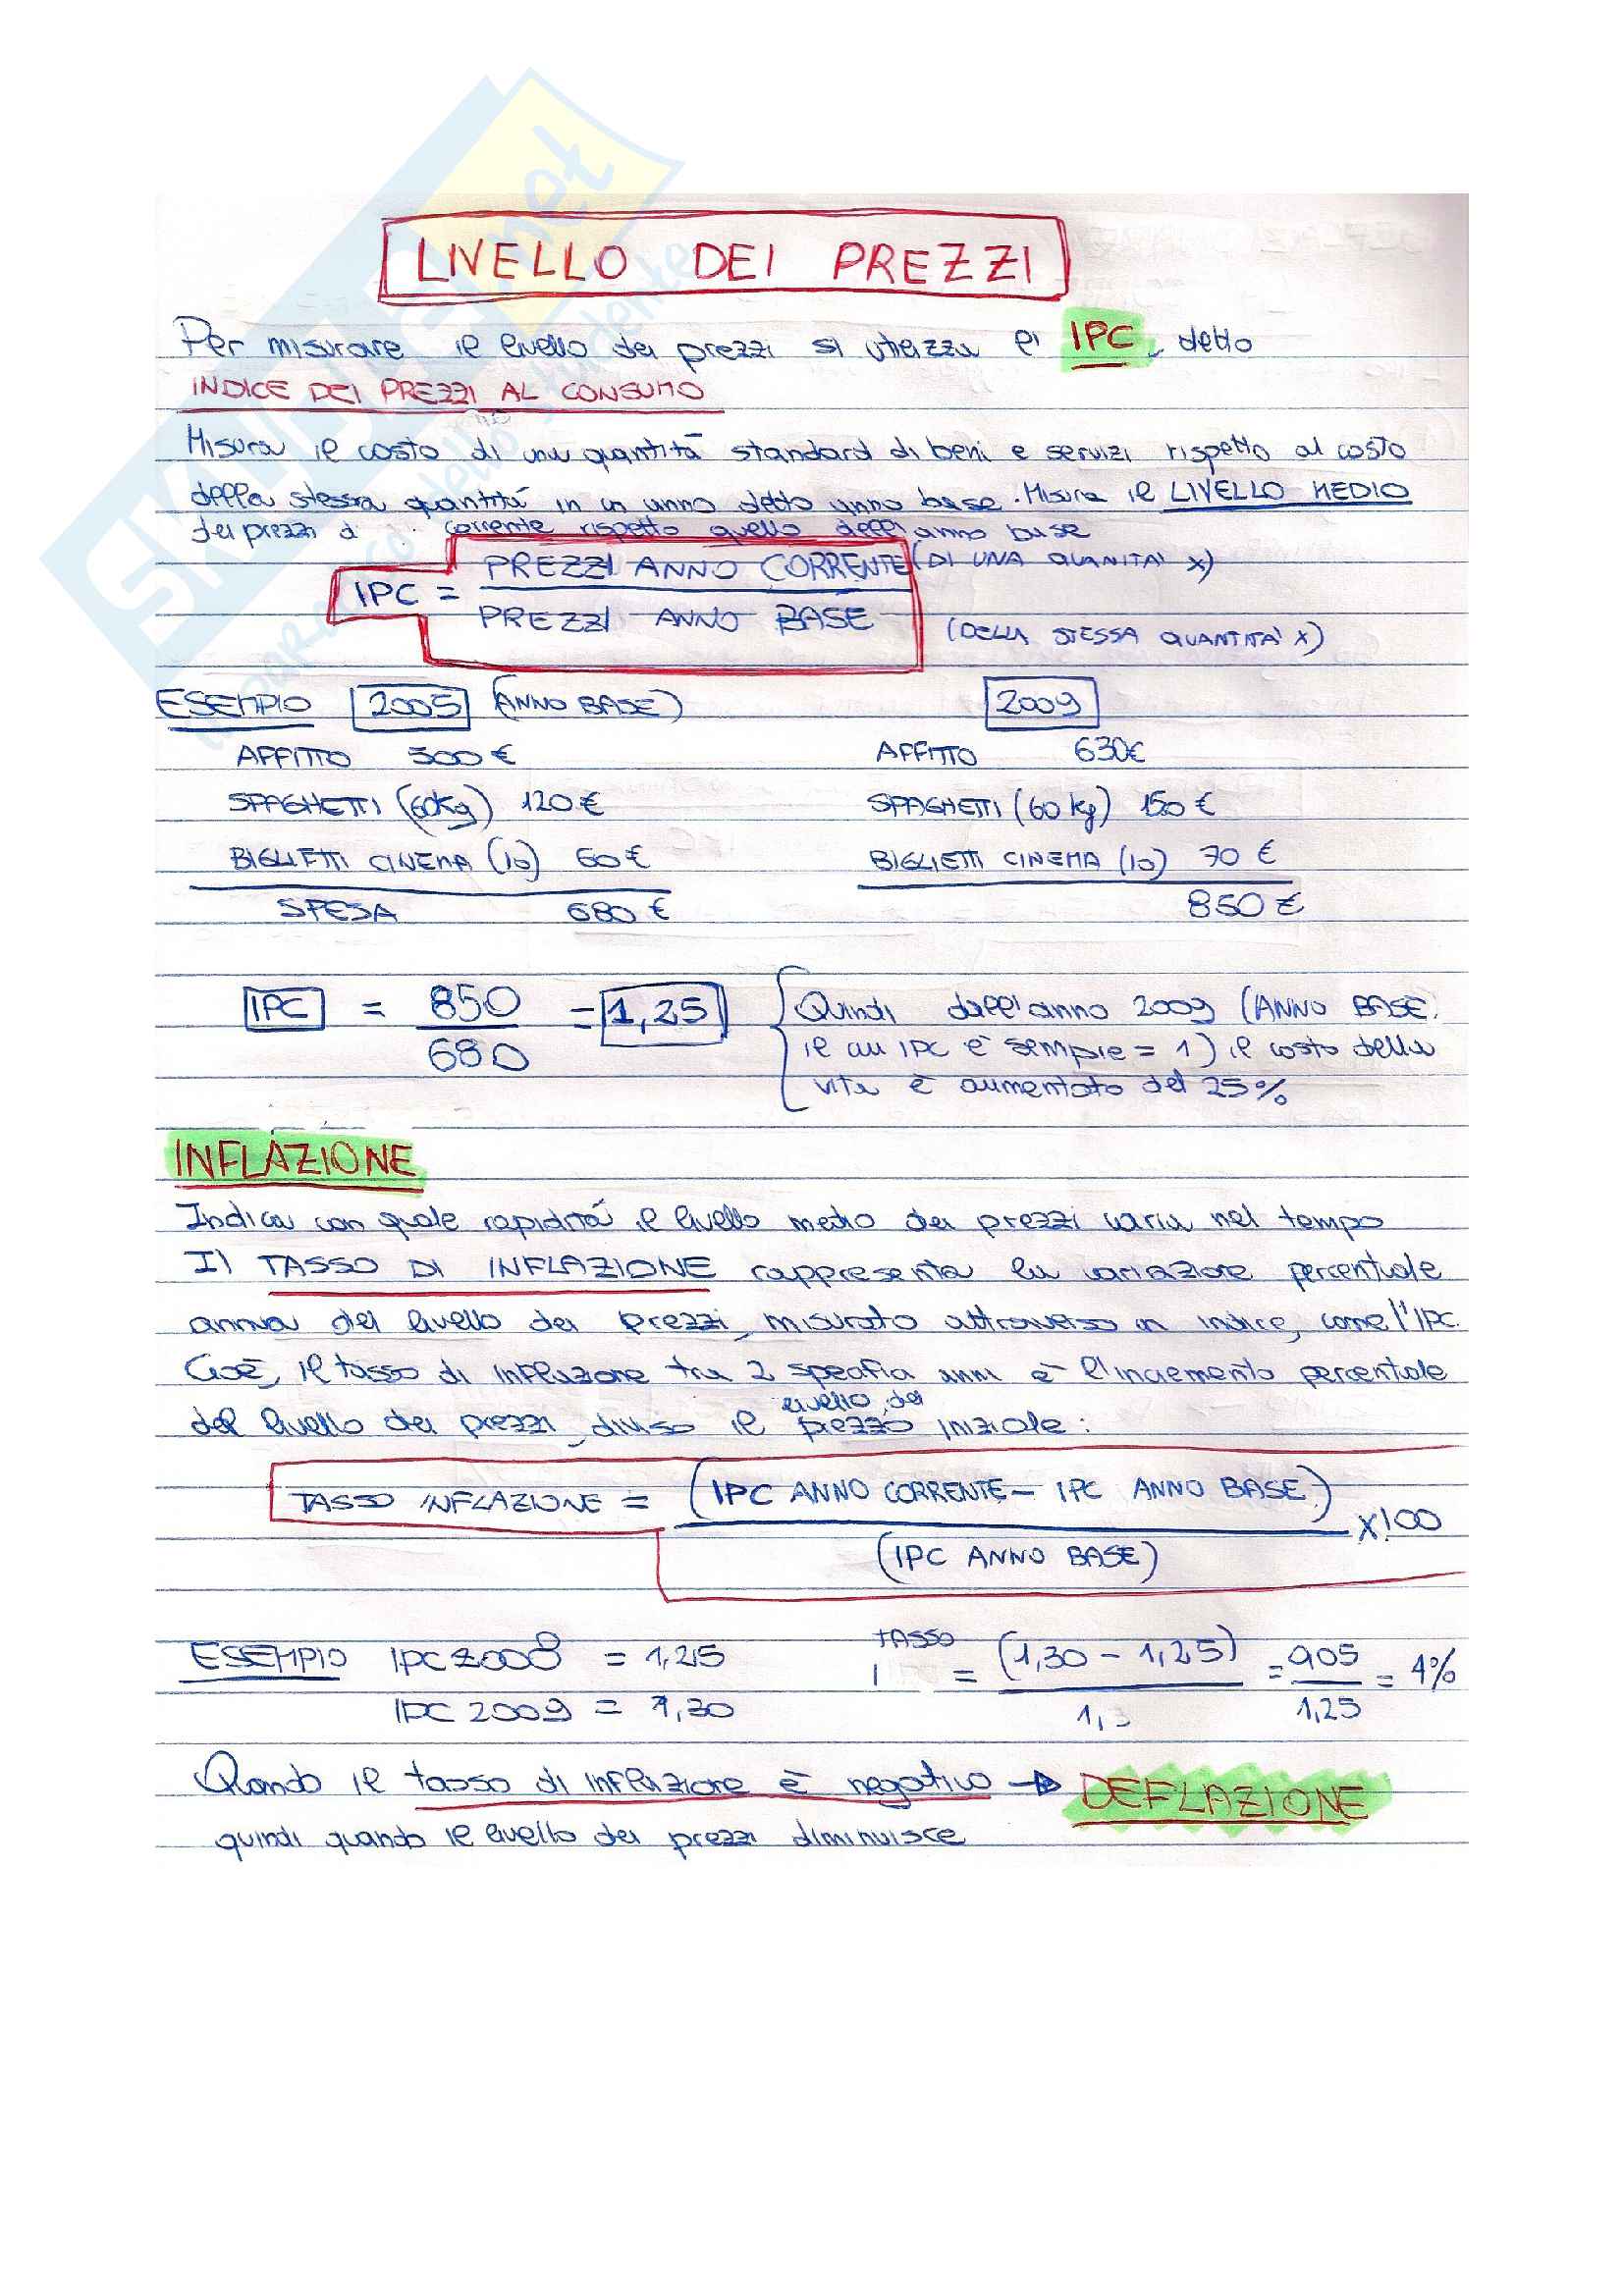 LIVELLO DEI PREZZI
Per misurare il livello dei prezzi si utilizza l' IPC, detto
INDICE DEI PREZZI AL CONSUMO
Misura il costo di una quantità standard di beni e servizi rispetto al costo
della stessa quantità in un anno detto anno base. Misura il LIVELLO MEDIO
dei prezzi corrente rispetto quello dell'anno base
IPC = PREZZI ANNO CORRENTE (DI UNA QUANITA' X)
PREZZI ANNO BASE (DELLA STESSA QUANTITA' X)
ESEMPIO 2005 (ANNO BASE) 2009
AFFITTO 500 € AFFITTO 630€
SPAGHETTI (60kg) 120€ SPAGHETTI (60 kg) 150 €
BIGLIETTI CINEMA (10) 60€ BIGLIETTI CINEMA (10) 70 €
SPESA 680 € 850 €
IPC = 850 / 680 = 1,25
Quindi dall'anno 2009 (ANNO BASE,
il cui IPC è sempre = 1) il costo della
vita è aumentato del 25%
INFLAZIONE
Indica con quale rapidità il livello medio dei prezzi varia nel tempo
Il TASSO DI INFLAZIONE rappresenta la variazione percentuale
annua del livello dei prezzi, misurato attraverso un indice, come l'IPC.
Cioè, il tasso di inflazione tra 2 specifici anni è l'incremento percentuale
del livello dei prezzi, diviso il livello dei prezzo iniziale:
TASSO INFLAZIONE = (IPC ANNO CORRENTE - IPC ANNO BASE) x 100
(IPC ANNO BASE)
ESEMPIO IPC 2008 = 1,25 TASSO I = (1,30 - 1,25) = 0,05 = 4%
IPC 2009 = 1,30 1,25
Quando il tasso di inflazione è negativo → DEFLAZIONE
quindi quando il livello dei prezzi diminuisce
SKUOLA.net